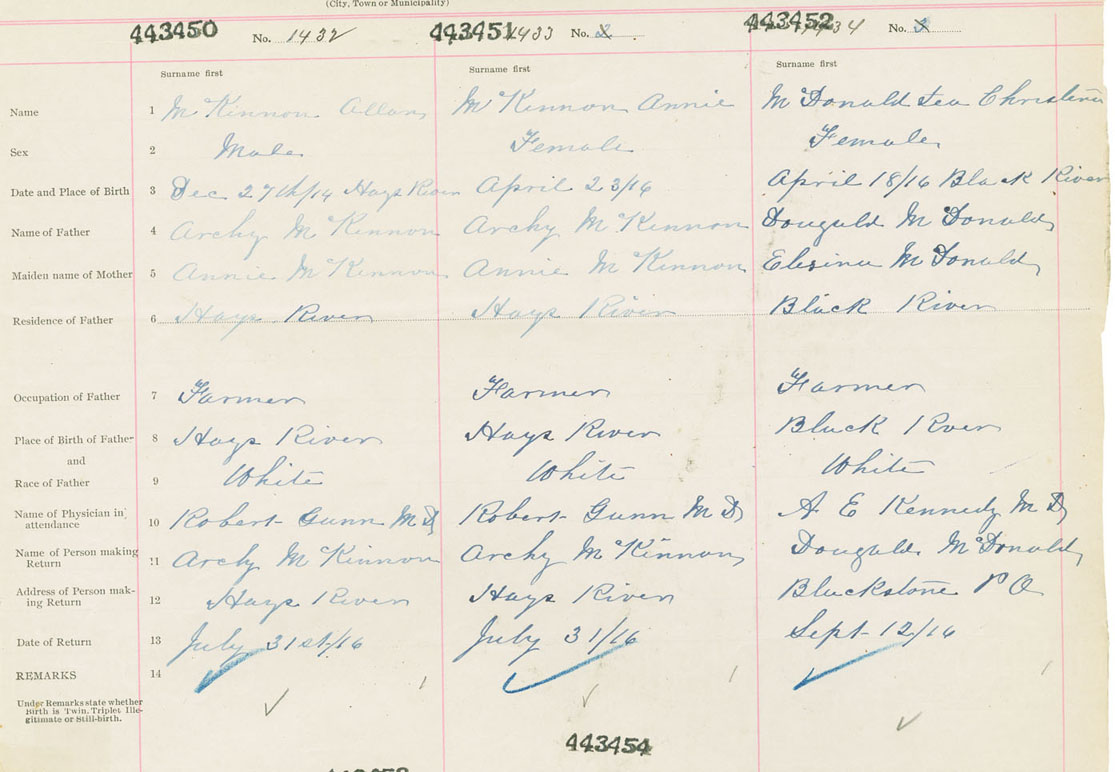 (City, Town or Municipality)
443450 No. 1432 443451 1433 No. 2 443452 1434 No. 3
Surname first Surname first Surname first
Name 1 McKinnon Allan McKinnon Annie McDonald Christina
Sex 2 Male Female Female
Date and Place of Birth 3 Dec 27th/14 Hays River April 23/16 April 18/16 Black River
Name of Father 4 Archy McKinnon Archy McKinnon Dougald McDonald
Maiden name of Mother 5 Annie McKinnon Annie McKinnon McDonald
Residence of Father 6 Hays River Hays River Black River
Occupation of Father 7 Farmer Farmer Farmer
Place of Birth of Father 8 Hays River Hays River Black Rver
and
Race of Father 9 White White White
Name of Physician in attendance 10 Robert Gunn M D Robert Gunn M D A E Kennedy M D
Name of Person making Return 11 Archy McKinnon Archy McKinnon Dougald McDonald
Address of Person making Return 12 Hays River Hays River Blackstone P O
Date of Return 13 July 31st/16 July 31/16 Sept 12/16
REMARKS 14
Under Remarks state whether
Birth is Twin, Triplet Ille-
gitimate or Still-birth.
443454